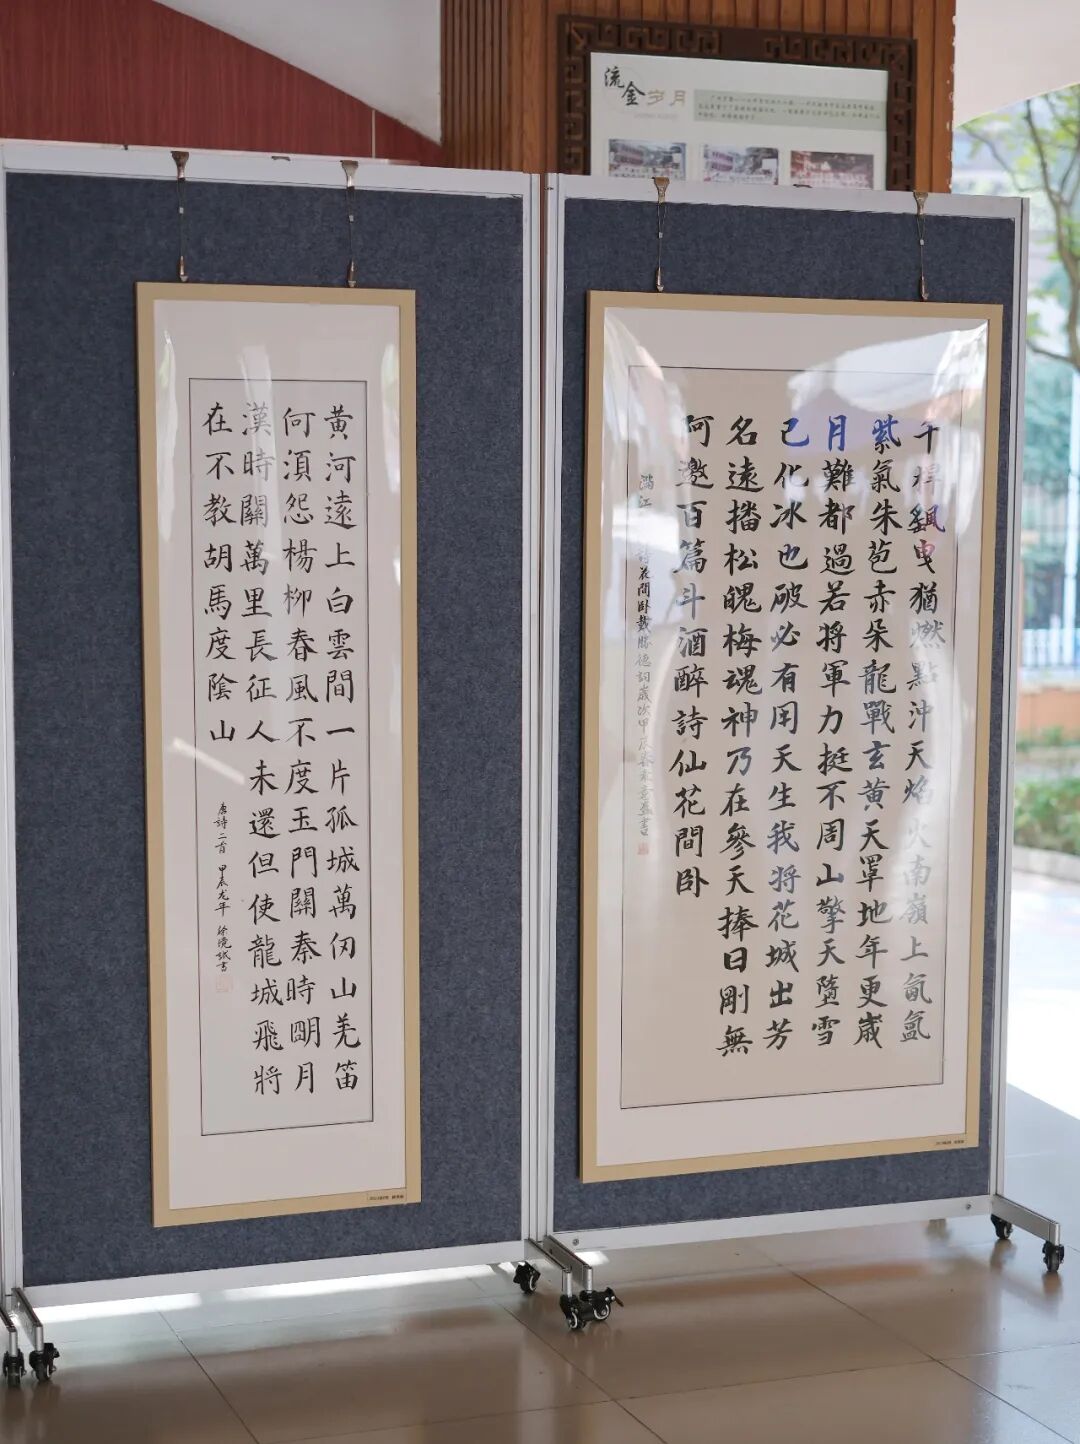 流金岁月
黃河遠上白雲間一片孤城萬仞山羌笛
何須怨楊柳春風不度玉門關秦時明月
漢時關萬里長征人未還但使龍城飛將
在不教胡馬度陰山
唐詩二首 甲辰龙年 徐曉 書
千 曳猶燃點沖天焰火南嶺上氤氳
紫氣朱苞赤朵龍戰玄黄天罩地年更歲
月難都過若將軍力挺不周山擎天墮雪
已化冰也破必有用天生我將花城出芳
名遠播松魄梅魂神乃在參天捧日剛無
何邀百篇斗酒醉詩仙花間卧
滿江 詩花間卧戴勝德詞歲次甲辰春 書